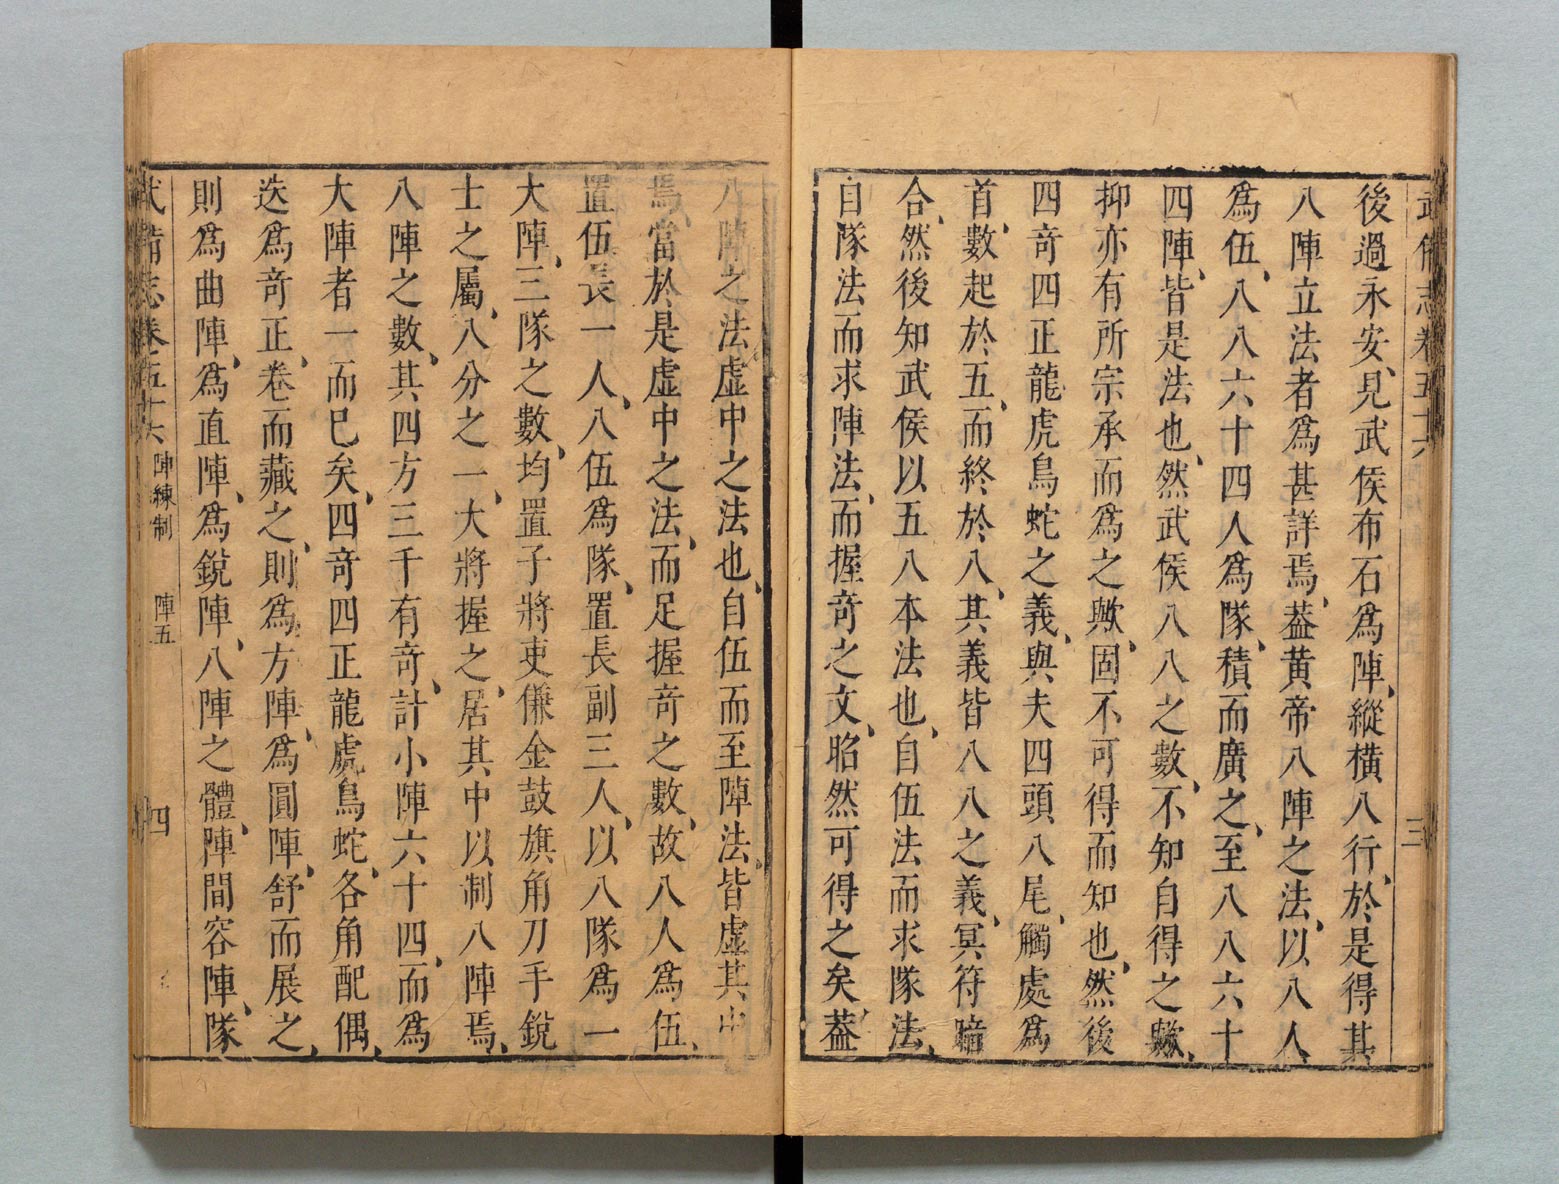 武備志卷五十六 三
後過永安、見武侯布石爲陣、縱橫八行、於是得其
八陣立法者爲甚詳焉、葢黄帝八陣之法、以八人
爲伍、八八六十四人爲隊、積而廣之、至八八六十
四陣、皆是法也、然武侯八八之數、不知自得之歟、
抑亦有所宗承而爲之歟、固不可得而知也、然後
四竒四正龍虎鳥蛇之義、與夫四頭八尾、觸處爲
首、數起於五、而終於八、其義皆八八之義、冥符暗
合、然後知武侯以五八本法也、自伍法而求隊法、
自隊法而求陣法、而握竒之文、昭然可得之矣、葢
八陣之法虚中之法也、自伍而至陣法、皆虚其中
焉、當於是虚中之法、而足握竒之數、故八人爲伍、
置伍長一人、八伍爲隊、置長副三人、以八隊爲一
大陣、三隊之數、均置子將吏傔金鼓旗角刀手銳
士之屬、八分之一、大將握之、居其中以制八陣焉、
八陣之數、其四方三千有竒、計小陣六十四、而爲
大陣者一而巳矣、四竒四正龍虎鳥蛇、各角配偶、
迭爲竒正、卷而藏之、則爲方陣、爲圓陣、舒而展之、
則爲曲陣、爲直陣、爲銳陣、八陣之體、陣間容陣、隊
武備志卷五十六 陣練制 陣五 四